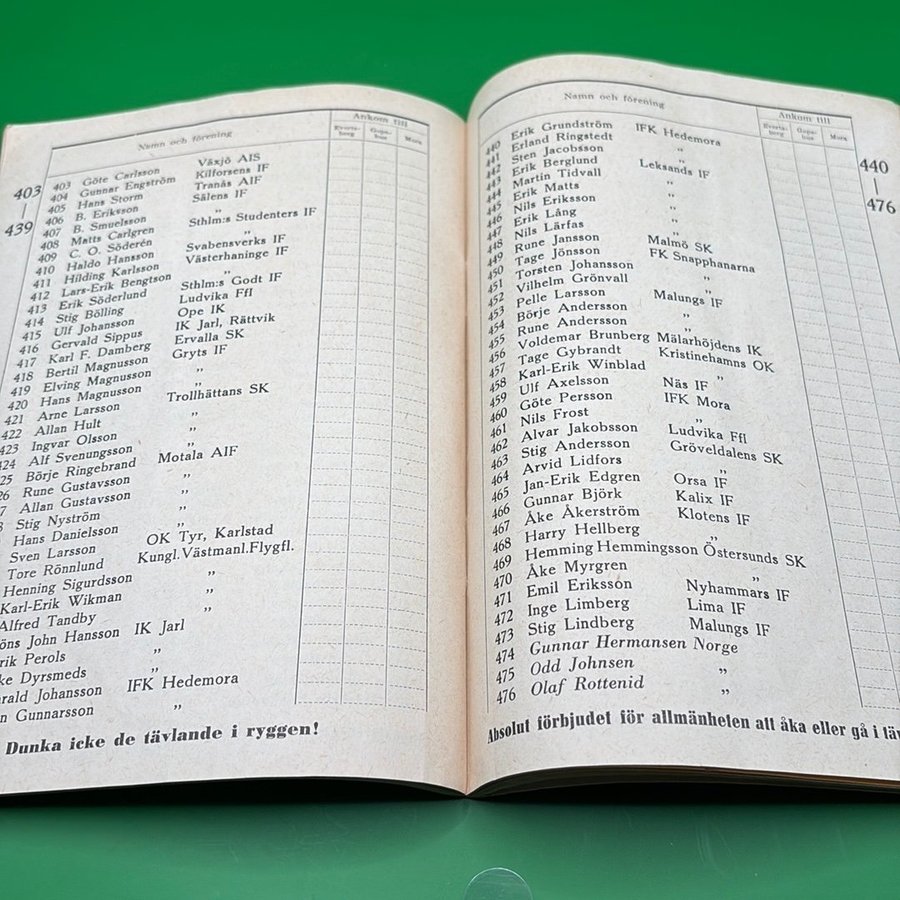 Namn och förening Ankom till
Evertsberg Gopshus Mora
403 Göte Carlsson Växjö AIS
404 Gunnar Engström Kilforsens IF
405 Hans Storm Tranås AIF
406 B. Eriksson Sälens IF
407 B. Smuelsson „
408 Matts Carlgren Sthlm:s Studenters IF
409 C. O. Söderén „
410 Haldo Hansson Svabensverks IF
411 Hilding Karlsson Västerhaninge IF
412 Lars-Erik Bengtson „
413 Erik Söderlund Sthlm:s Godt IF
414 Stig Bölling Ludvika Ffl
415 Ulf Johansson Ope IK
416 Gervald Sippus IK Jarl, Rättvik
417 Karl F. Damberg Ervalla SK
418 Bertil Magnusson Gryts IF
419 Elving Magnusson „
420 Hans Magnusson „
421 Arne Larsson Trollhättans SK
422 Allan Hult „
423 Ingvar Olsson „
424 Alf Svenungsson „
25 Börje Ringebrand Motala AIF
26 Rune Gustavsson „
7 Allan Gustavsson „
Stig Nyström „
Hans Danielsson „
Sven Larsson OK Tyr, Karlstad
Tore Rönnlund Kungl.Västmanl.Flygfl.
Henning Sigurdsson „
Karl-Erik Wikman „
Alfred Tandby „
öns John Hansson IK Jarl
rik Perols „
ke Dyrsmeds „
arald Johansson IFK Hedemora
n Gunnarsson „
Dunka icke de tävlande i ryggen!
403
|
439
Namn och förening Ankom till
Evertsberg Gopshus Mora
440 Erik Grundström IFK Hedemora
441 Erland Ringstedt
442 Sten Jacobsson „
443 Erik Berglund Leksands IF
444 Martin Tidvall „
445 Erik Matts „
446 Nils Eriksson „
447 Erik Lång „
448 Nils Lärfas „
449 Rune Jansson Malmö SK
450 Tage Jönsson FK Snapphanarna
451 Torsten Johansson „
452 Vilhelm Grönvall „
453 Pelle Larsson Malungs IF
454 Börje Andersson „
455 Rune Andersson „
456 Voldemar Brunberg Mälarhöjdens IK
457 Tage Gybrandt Kristinehamns OK
458 Karl-Erik Winblad „
459 Ulf Axelsson Näs IF
460 Göte Persson IFK Mora
461 Nils Frost „
462 Alvar Jakobsson Ludvika Ffl
463 Stig Andersson Gröveldalens SK
464 Arvid Lidfors „
465 Jan-Erik Edgren Orsa IF
466 Gunnar Björk Kalix IF
467 Åke Åkerström Klotens IF
468 Harry Hellberg „
469 Hemming Hemmingsson Östersunds SK
470 Åke Myrgren „
471 Emil Eriksson Nyhammars IF
472 Inge Limberg Lima IF
473 Stig Lindberg Malungs IF
474 Gunnar Hermansen Norge
475 Odd Johnsen „
476 Olaf Rottenid „
Absolut förbjudet för allmänheten att åka eller gå i täv
440
|
476